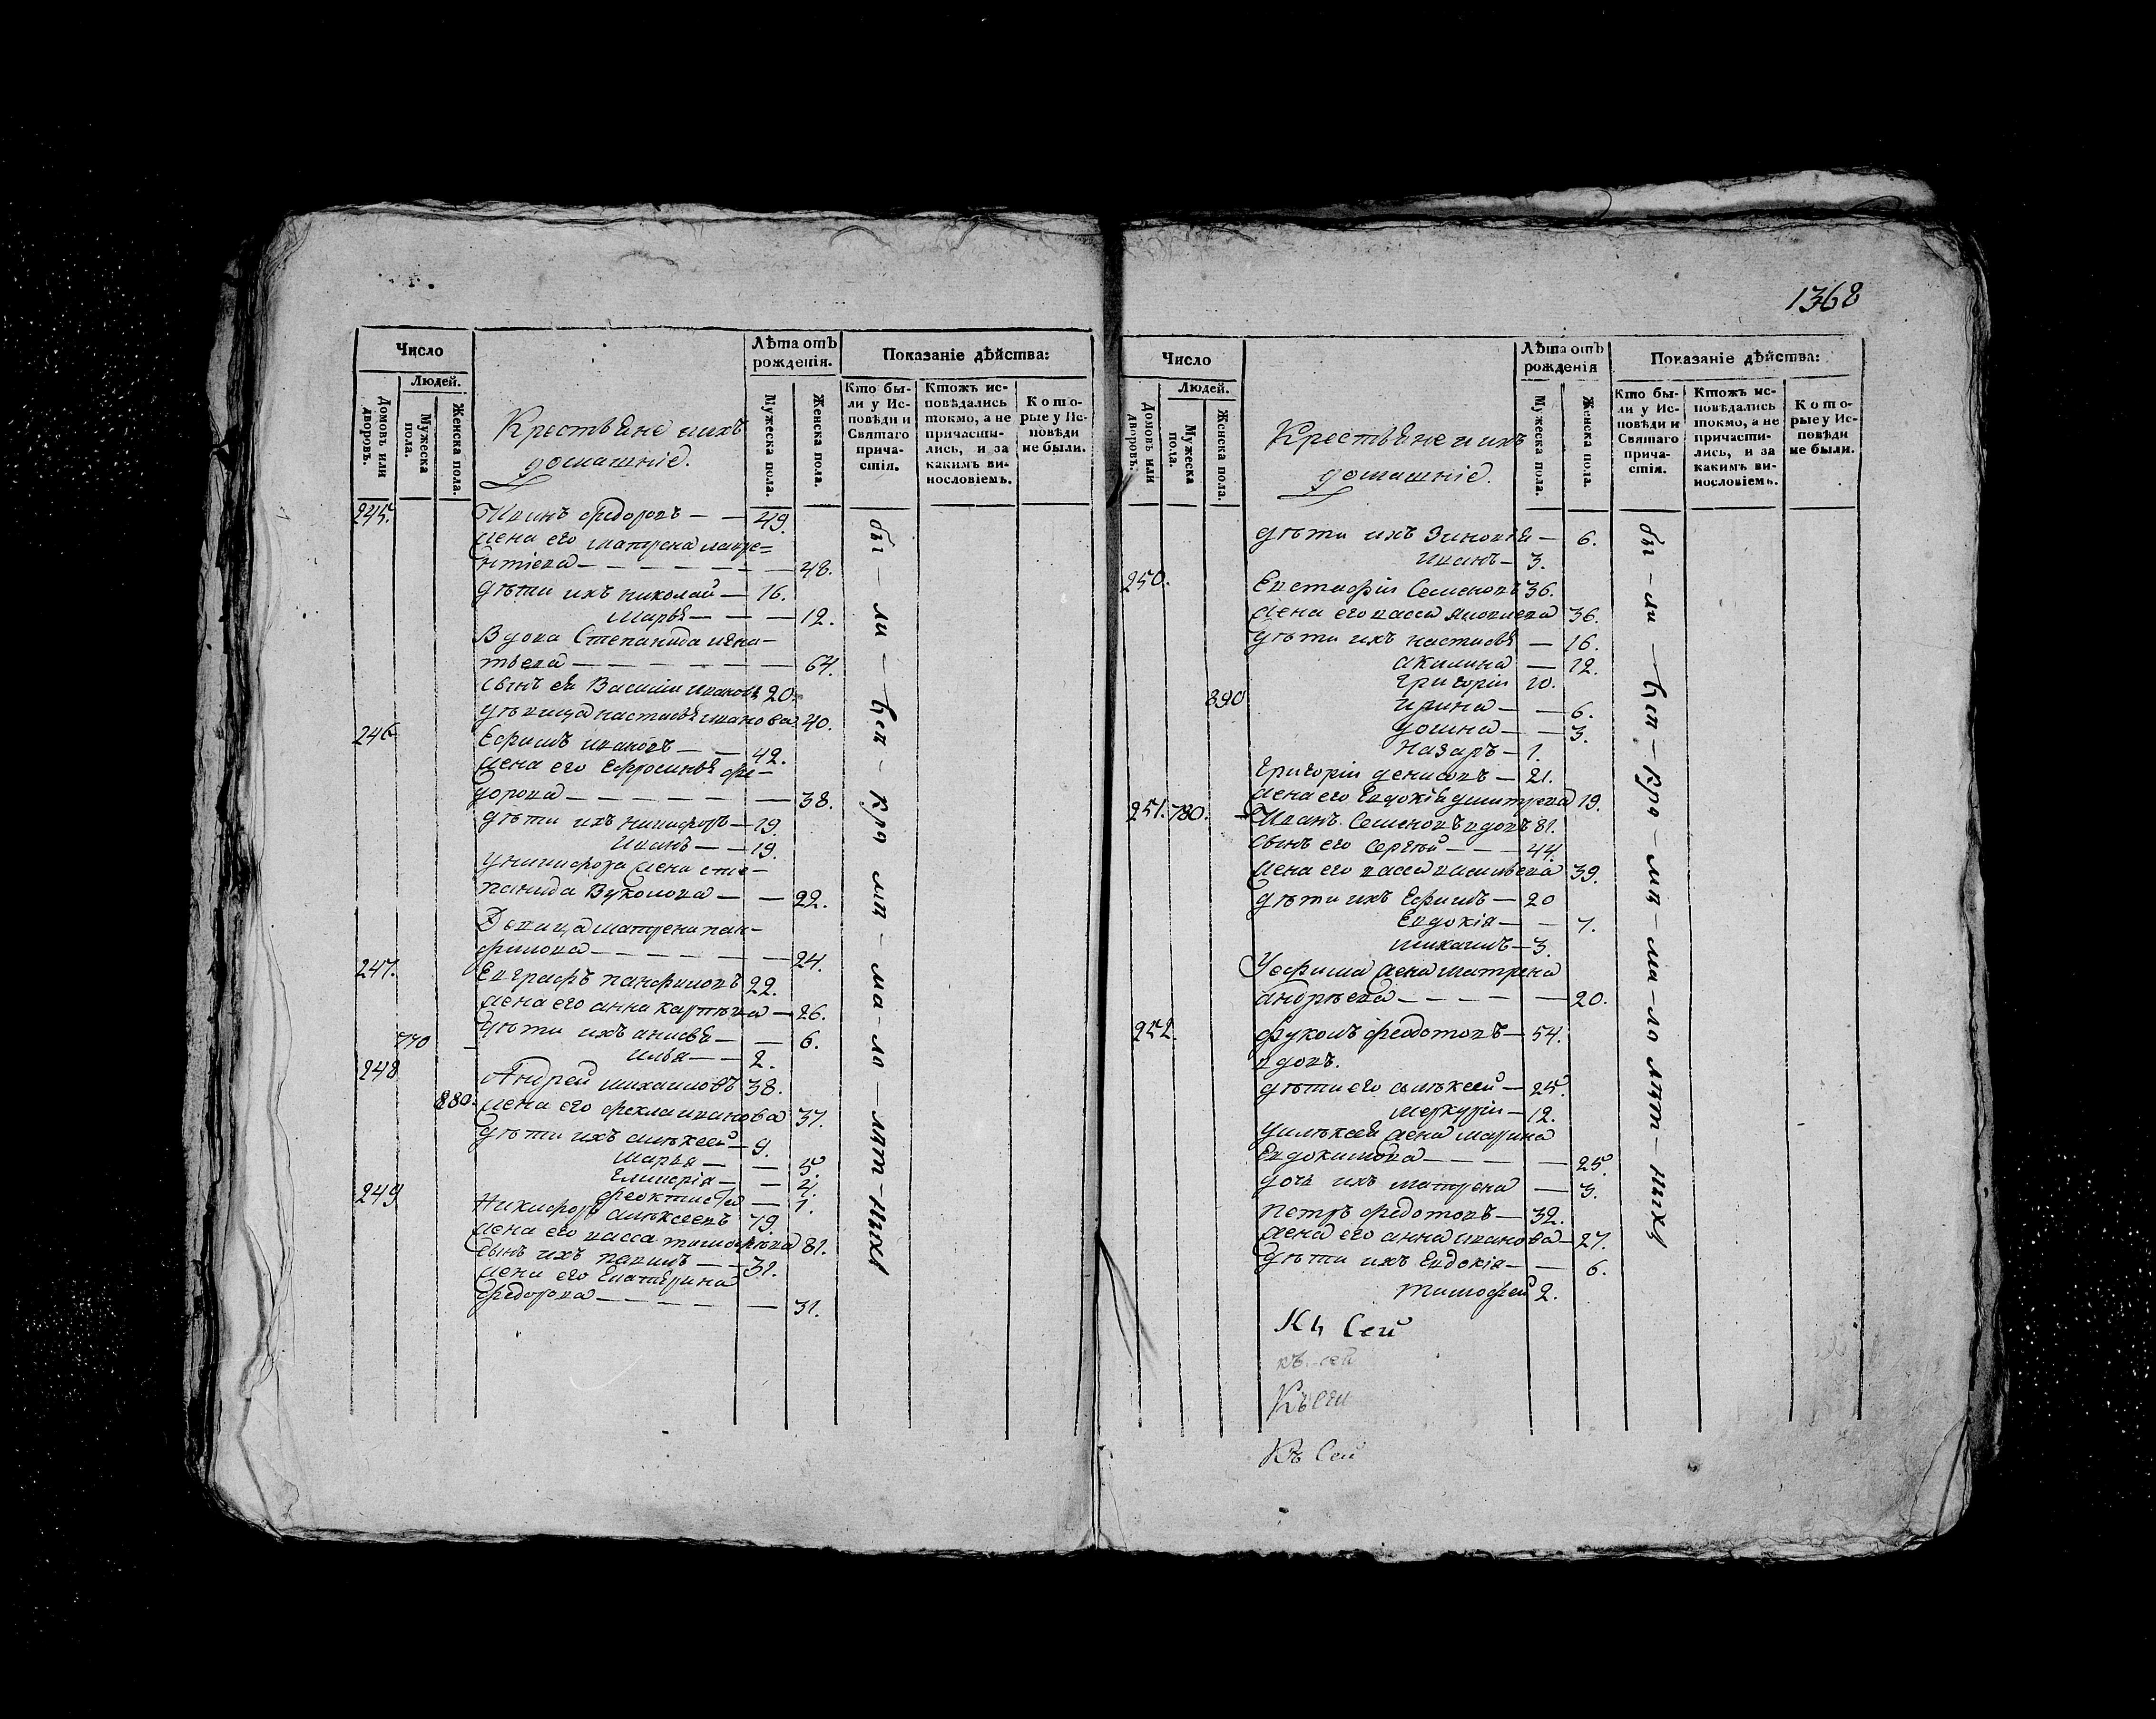 1368
Число
Лѣта отъ рожденія.
Показаніе дѣйства:
Людей.
Домовъ или дворовъ.
Мужеска пола.
Женска пола.
Крестьяне и ихъ
домашніе.
Мужеска пола.
Женска пола.
Кто бы-
ли у Ис-
повѣди и
Святаго
прича-
стія.
Ктожъ ис-
повѣдались
токмо, а не
причасти-
лись, и за
какимъ ви-
нословіемъ.
Кото-
рые у Ис-
повѣди
не были.
245. Иванъ Федоровъ — — 49.
жена его матрена лавре=
нтіева — — — 48.
дѣти ихъ николай — 16.
марья — — — 12.
Вдова Степанида игна-
тьева — — — 64.
сынъ ея Василии ивановъ 20.
дѣвица настасья иванова 40.
246 Ефимъ ивановъ — — 42.
жена его Ефросинья фе-
дорова — — — 38.
дѣти ихъ никифоръ — 19.
Иванъ — — 19.
у никифора жена сте-
панида Вуколова — — 22.
Девица матрена пан-
филова — — — 24.
247. Евграфъ панфиловъ 22.
жена его анна карпѣва — 26.
дѣти ихъ анисья — — 6.
770 илья — — 2.
248 Андрей михаиловъ 38.
880. жена его фекла иванова 37.
дѣти ихъ алѣксей — 9.
марья — — 5.
— — 4.
феоктиста — 1.
249 Никифоръ алѣксеевъ 79.
жена его васса тимофѣева 81.
сынъ ихъ — — 31.
жена его Екатерина
Федорова — — — 31.
бы — ли — у исп
Число
Лѣта отъ рожденія
Показаніе дѣйства:
Людей.
Домовъ или дворовъ.
Мужеска пола.
Женска пола.
Крестьяне и ихъ
домашніе.
Мужеска пола.
Женска пола.
Кто бы-
ли у Ис-
повѣди и
Святаго
прича-
стія.
Ктожъ ис-
повѣдались
токмо, а не
причасти-
лись, и за
какимъ ви-
нословіемъ.
Кото-
рые у Ис-
повѣди
не были.
дѣти ихъ Зиновья — 6.
иванъ — 3.
250. Евстафіи Семеновъ 36.
жена его васса яковлева 36.
дѣти ихъ настасья — 16.
акилина — 12.
Григоріи 10.
890 Ирина — — 6.
домна — — 3.
Назаръ — 1.
Григоріи денисовъ — 21.
жена его Евдокія дмитрева 19.
251. 780. Иванъ Семеновъ вдовъ 81.
сынъ его сергѣй — — 44.
жена его васса васильева 39.
дѣти ихъ Ефимъ — 20
Евдокія — — 7.
михаилъ — 3.
У ефима жена матрена
андрѣева — — — 20.
252. федотовъ — 54.
вдовъ.
дѣти его алѣксей — 25.
меркуріи — 12.
у алѣксея жена марина
Евдокимова — — — 25.
дочь ихъ матрена — 3.
петръ федотовъ — 32.
жена его анна иванова — 27.
дѣти ихъ Евдокія — — 6.
тимофей 2.
Къ Сей
къ сей
Къ сей
Къ Сей
бы — ли — у исп